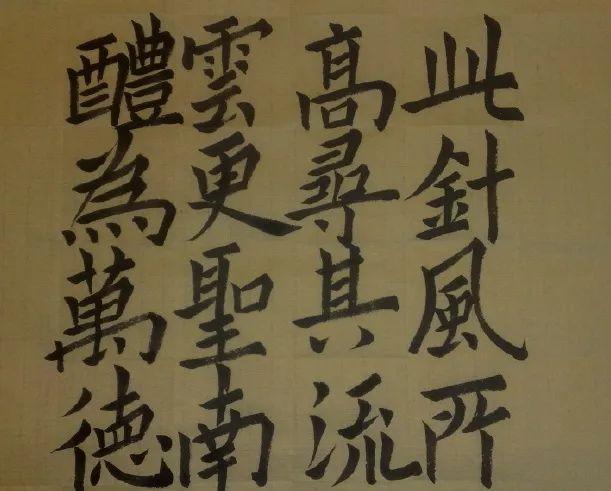 此針風所
高尋其流
雲更聖南
醴為萬德